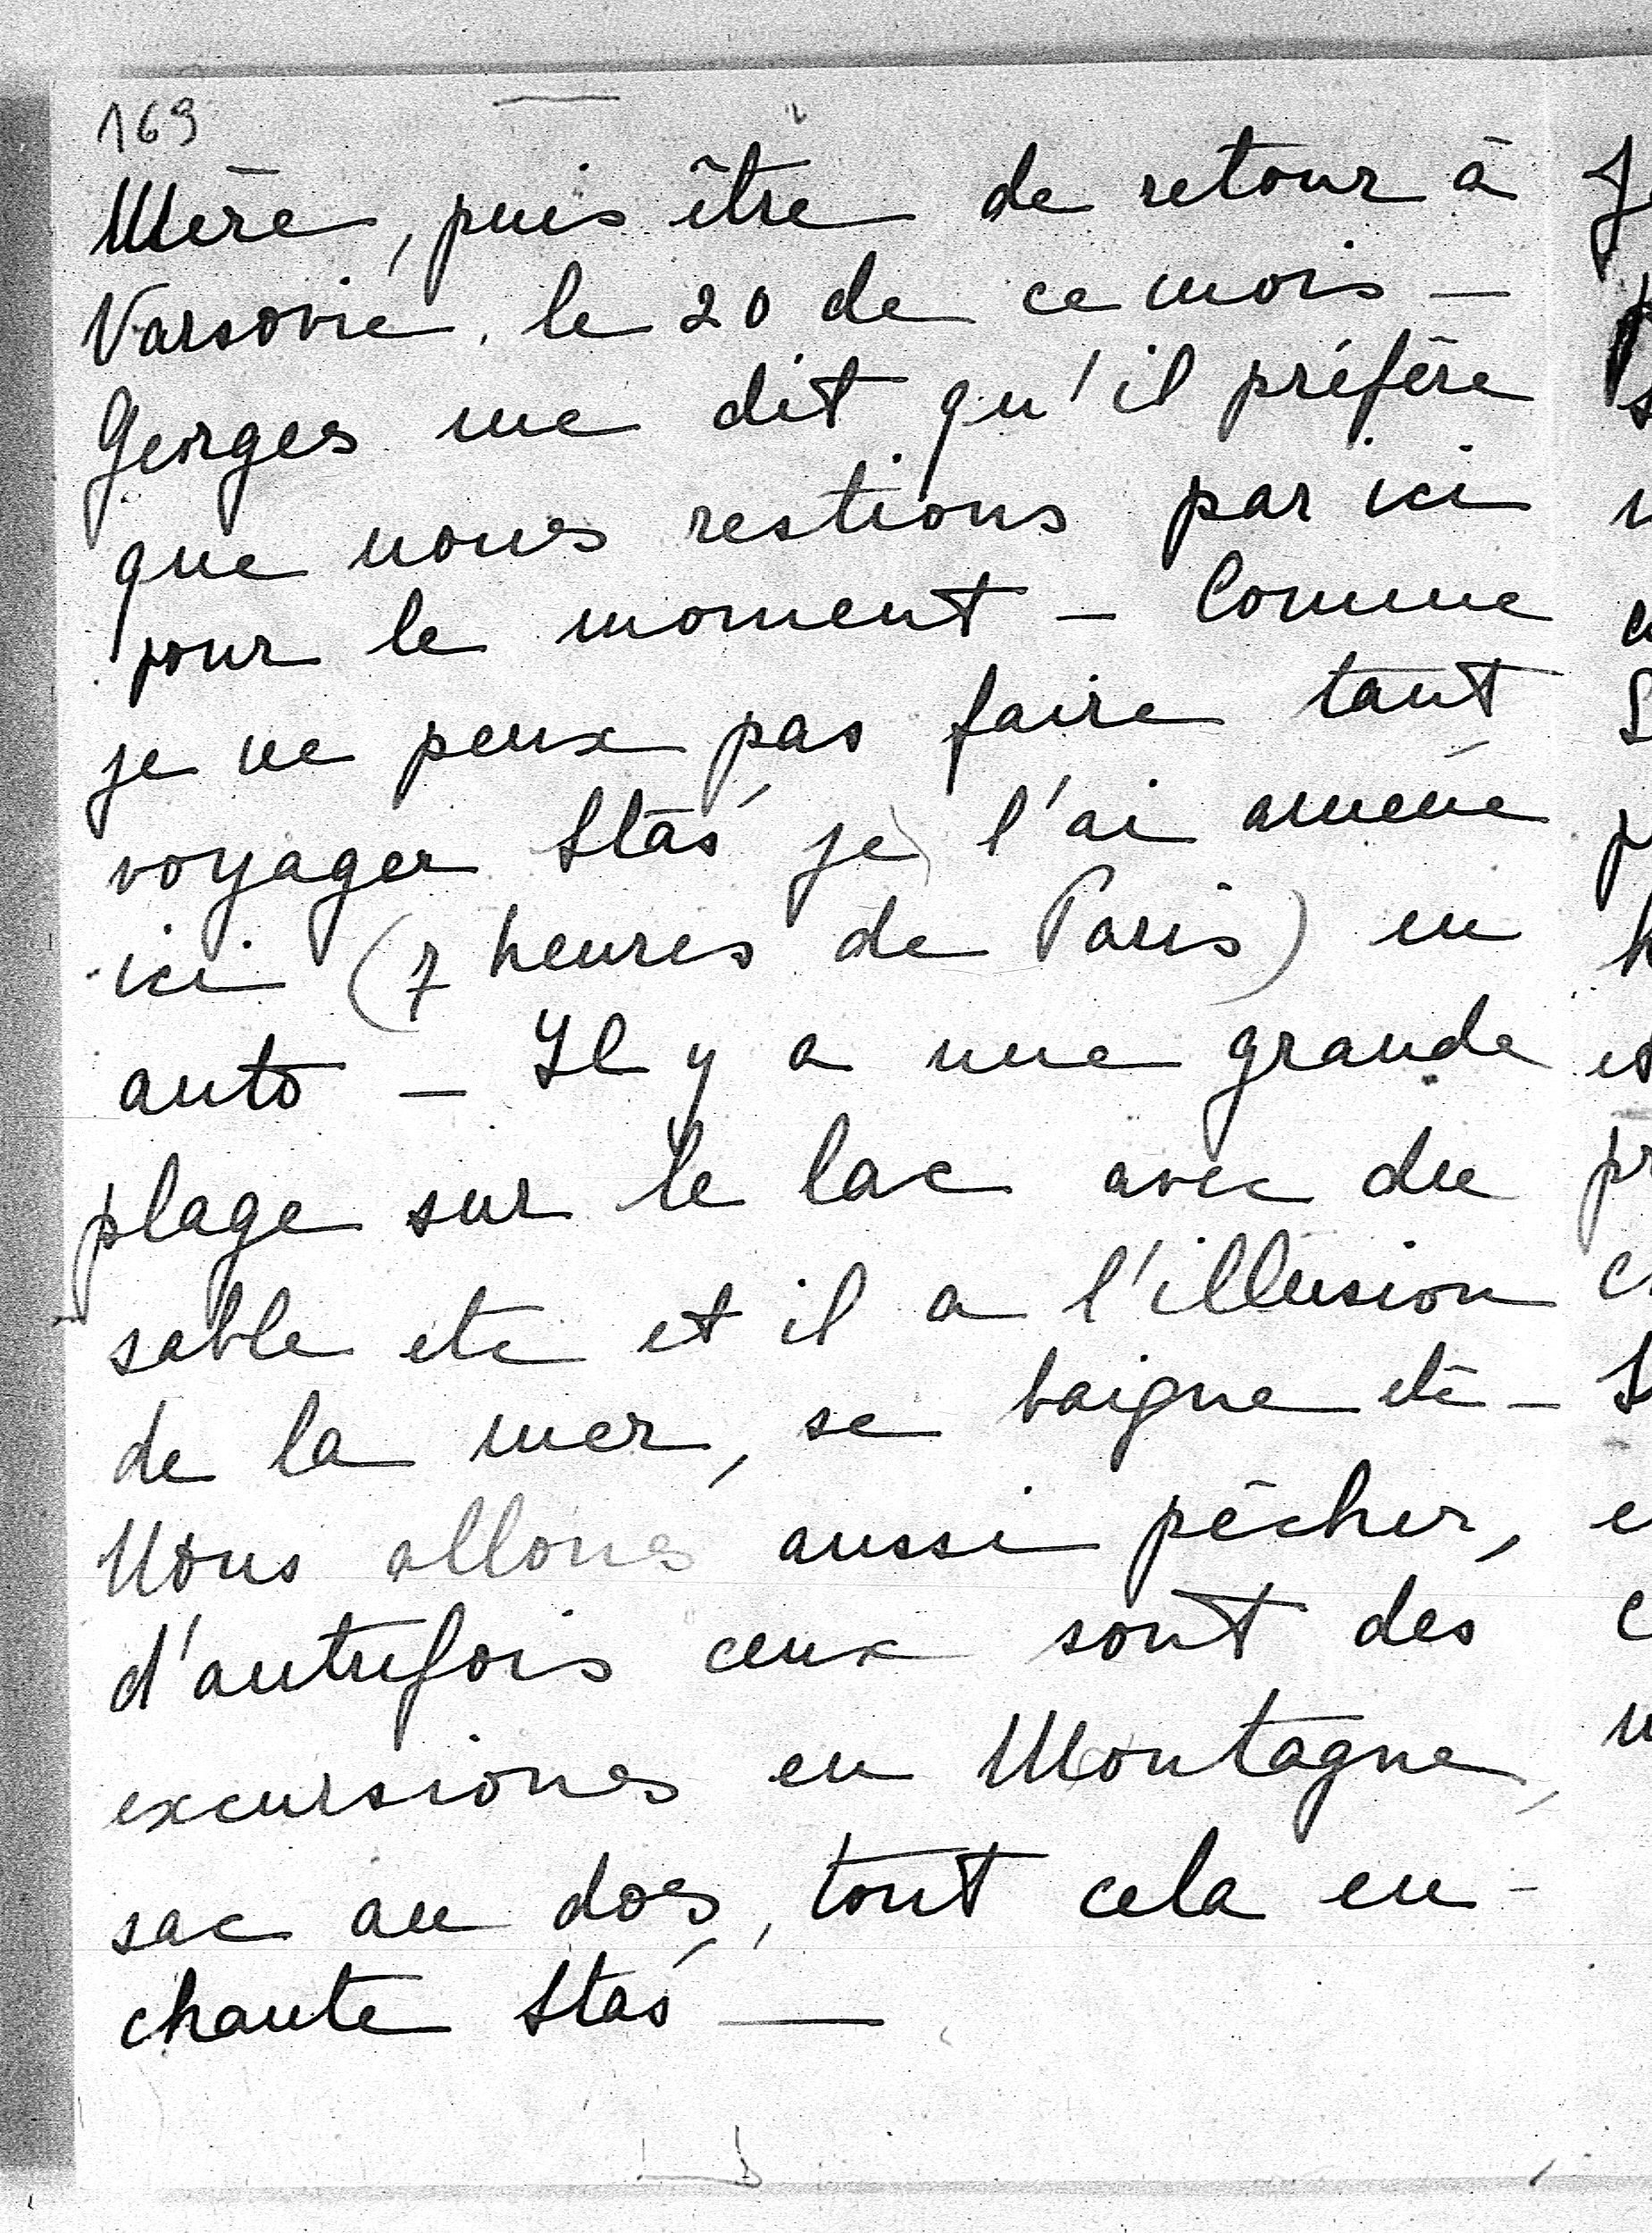 169
Mère, puis être de retour à
Varsovie, le 20 de ce mois —
Georges me dit qu'il préfère
que nous restions par ici
pour le moment — Comme
je ne peux pas faire tant
voyager Staś je l'ai amené
ici (7 heures de Paris) en
auto — Il y a une grande
plage sur le lac avec du
sable etc et il a l'illusion
de la mer, se baigne etc —
Nous allons aussi pêcher,
d'autrefois ceux sont des
excursions en Montagne,
sac au dos, tout cela en-
chante Staś —